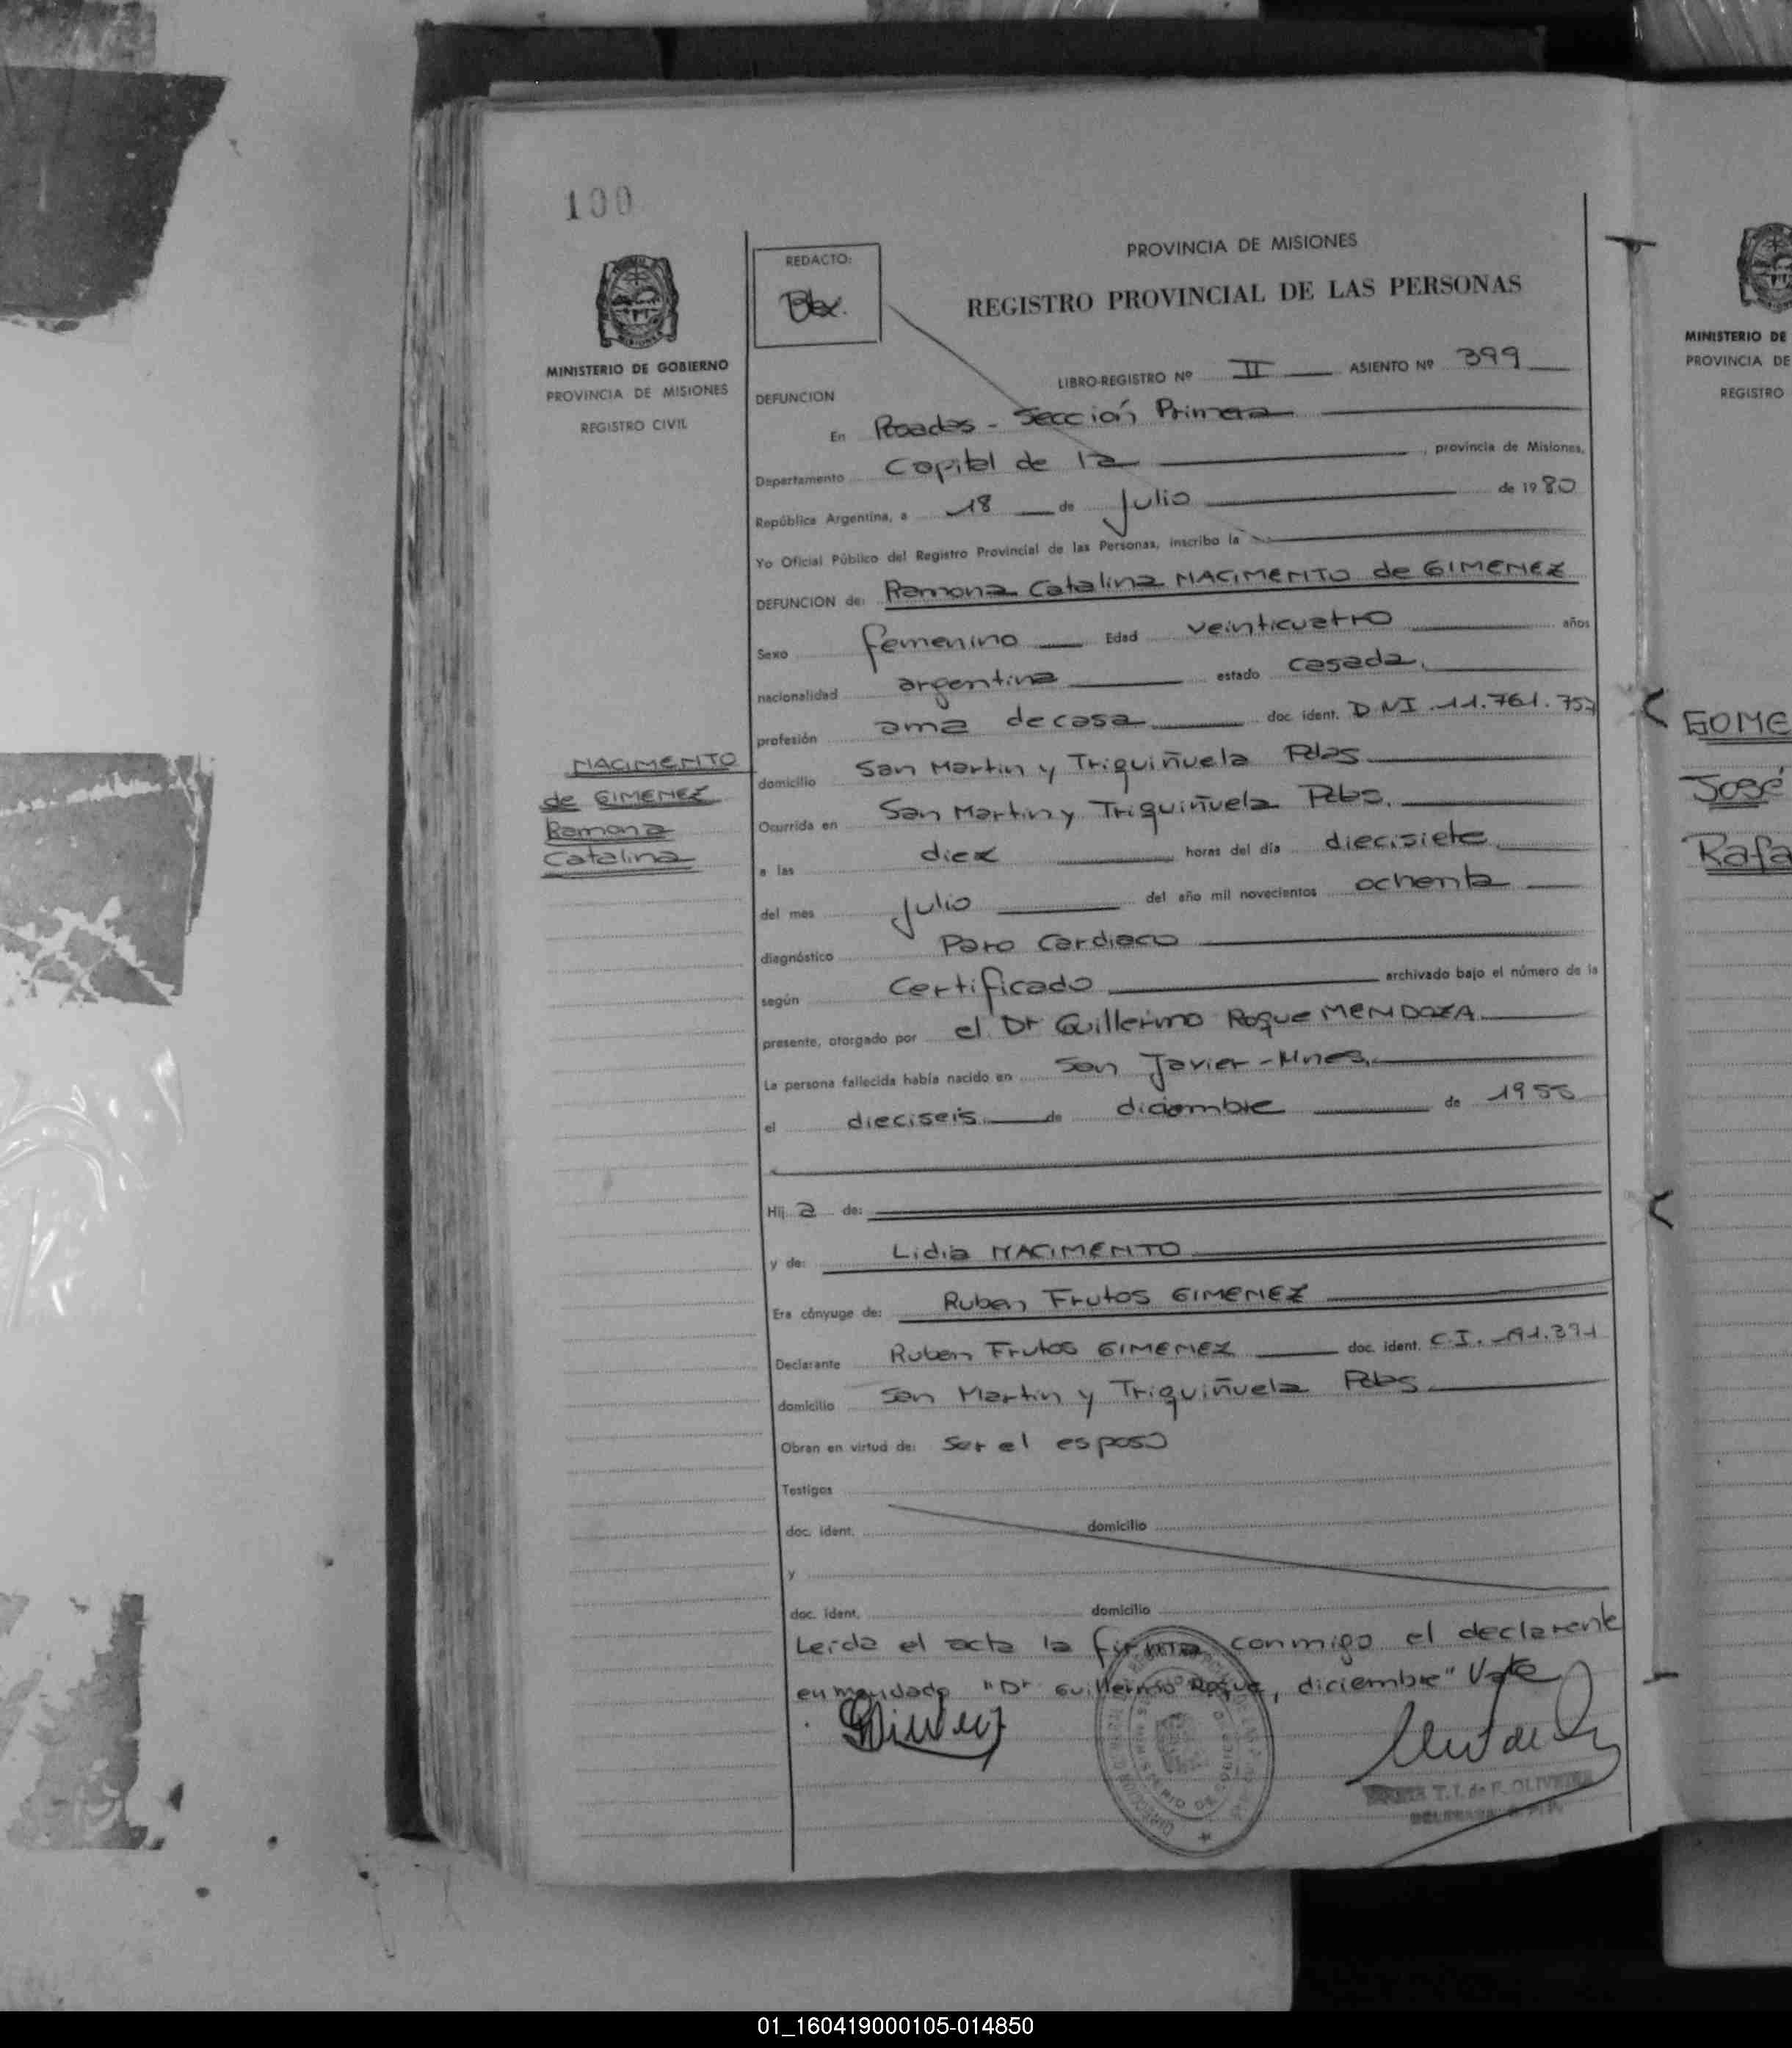 100
MINISTERIO DE GOBIERNO
PROVINCIA DE MISIONES
REGISTRO CIVIL
REDACTO:
PROVINCIA DE MISIONES
REGISTRO PROVINCIAL DE LAS PERSONAS
LIBRO-REGISTRO Nº II ASIENTO Nº 399
DEFUNCION
En Posadas - Sección Primera
Departamento Capital de la , provincia de Misiones,
República Argentina, a 18 de Julio de 1980
Yo Oficial Público del Registro Provincial de las Personas, inscribo la
DEFUNCION de: Ramona Catalina NACIMENTO de GIMENEZ
Sexo femenino Edad veinticuatro años
nacionalidad argentina estado casada.
profesión ama de casa doc. ident. DNI 11.761.757
domicilio San Martin y Triquiñuela Pdas
Ocurrida en San Martin y Triquiñuela Pdas.
a las diez horas del día diecisiete
del mes Julio del año mil novecientos ochenta
diagnóstico Paro Cardiaco
según Certificado archivado bajo el número de la
presente, otorgado por el Dr Guillermo Roque MENDOZA
La persona fallecida había nacido en San Javier - Mnes.
el dieciseis de diciembre de 1955
Hij a de:
y de: Lidia NACIMENTO
Era cónyuge de: Ruben Frutos GIMENEZ
Declarante Ruben Frutos GIMENEZ doc. ident. C.I. 191.391
domicilio San Martin y Triquiñuela Pdas
Obran en virtud de: ser el esposo
Testigos
doc. ident. domicilio
y
doc. ident. domicilio
Leida el acta la firma conmigo el declarante
enmendado "Dr Guillermo Roque, diciembre" Vale
T. I. de F. OLIVEIRA
NACIMENTO
de GIMENEZ
Ramona
Catalina
MINISTERIO DE
PROVINCIA DE
REGISTRO
GOME
José
Rafa
01_160419000105-014850